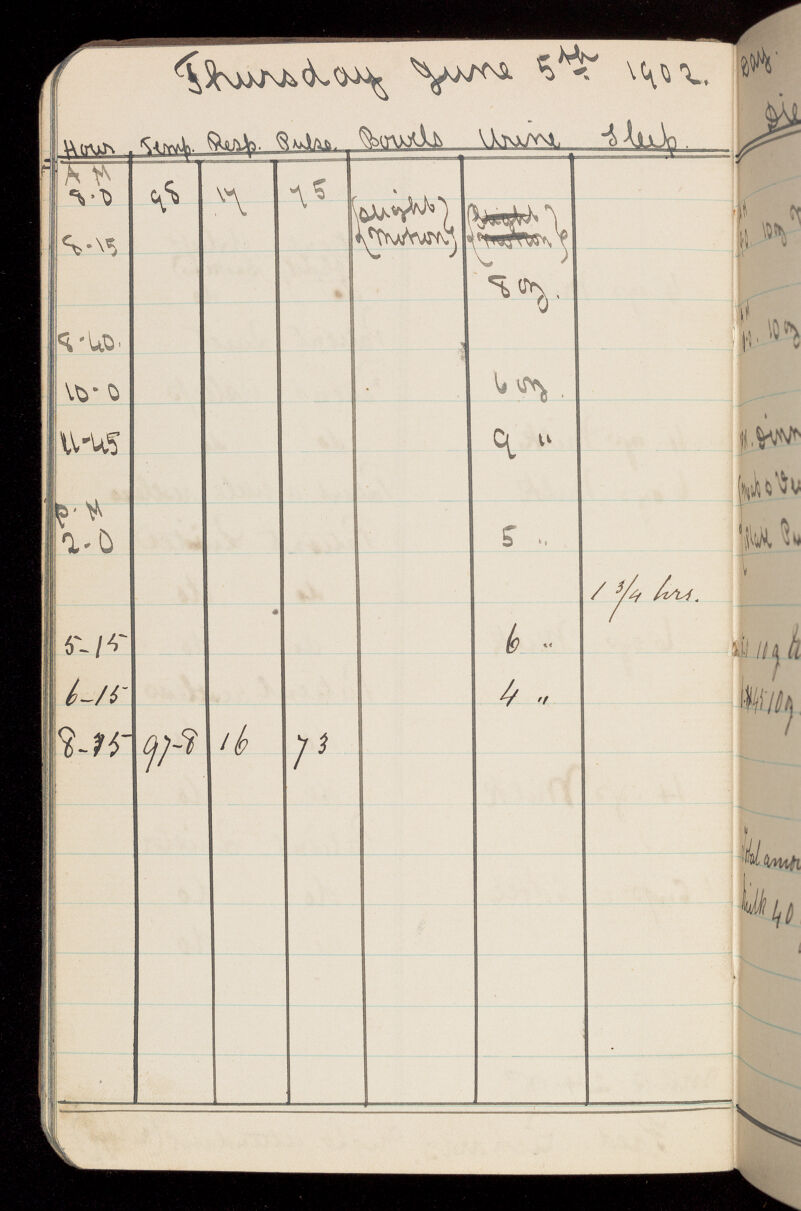 Thursday June 5th 1902.
Hour Temp. Resp. Pulse. Bowels Urine Sleep.
A M
8.0 98 17 75 {slight}
8-15 {Motion}
8 oz.
8-40.
10-0 6 oz.
11-45 9 "
P. M
2-0 5 "
1 3/4 hrs.
5-15 6 "
6-15 4 "
8-15 97-8 16 73
Day.
Die
10 oz
10 oz
Dinn
10
10
Total amou
Milk 40